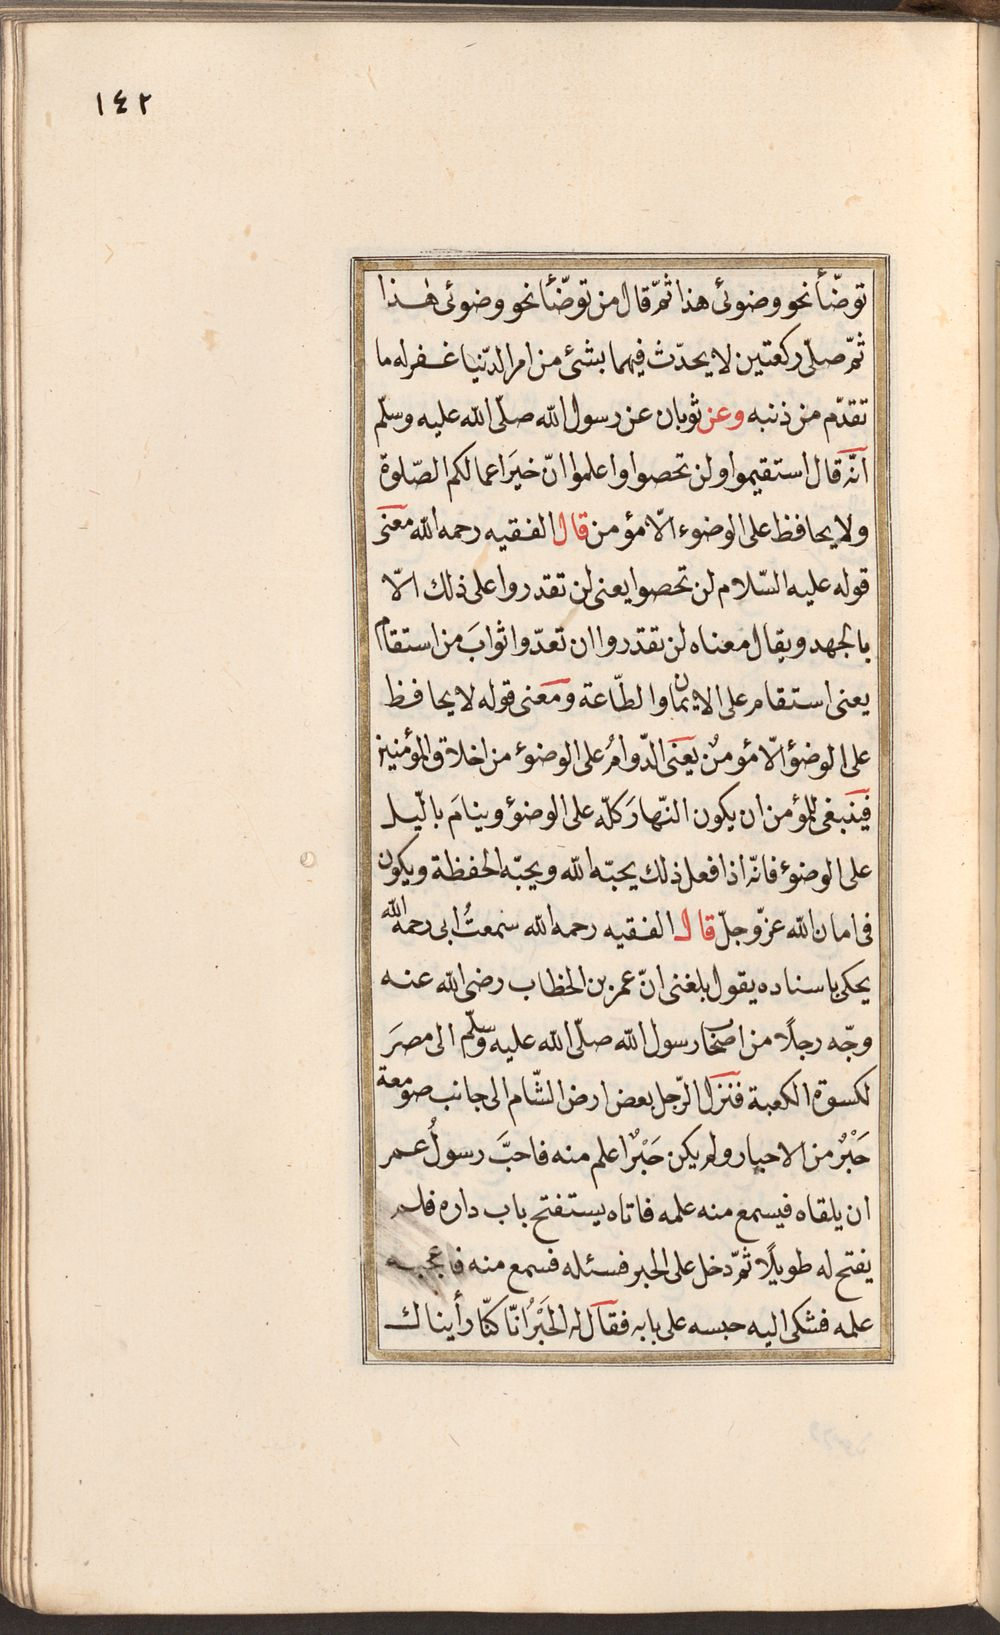 ١٤٢
توضّأ نحو وضوئى هذا ثمّ قال من توضّأ نحو وضوئى هذا
ثمّ صلّى ركعتين لا يحدّث فيهما بشئ من امر الدّنيا غفر له ما
تقدّم من ذنبه وعن ثوبان عن رسول الله صلّى الله عليه وسلّم
انّه قال استقيموا ولن تحصوا واعلموا انّ خيَر اعمالكم الصّلوة
ولا يحافظ على الوضوء الّا مؤمن قال الفقيه رحمه الله معنى
قوله عليه السّلام لن تحصوا يعنى لن تقدروا على ذلك الّا
بالجهد ويقال معناه لن تقدروا ان تعدّوا ثوابَ من استقام
يعنى استقام على الايمان والطّاعة ومعنى قوله لا يحافظ
على الوضؤ الّا مؤمنٌ يعنى الدّوامُ على الوضوء من اخلاق المؤمنين
فينبغى للمؤمن ان يكون النّهارَ كلّه على الوضؤ وينامَ بالّيل
على الوضوء فانّه اذا فعل ذلك يحبّه الله ويحبّه الحفظة ويكون
فى امان الله عزّ وجلّ قال الفقيه رحمه الله سمعتُ ابى رحمه الله
يحكى باسناده يقول بلغنى انّ عمر بن الخطاب رضى الله عنه
وجّه رجلًا من اصحاب رسول الله صلّى الله عليه وسلّم الى مصرَ
لكسوة الكعبة فنزل الرّجل بعض ارض الشّام الى جانب صومعة
حَبْرٌ من الاحبار ولم يكن حَبْرٌ اعلم منه فاحبَّ رسولُ عمر
ان يلقاه فيسمع منه علمه فاتاه يستفتح باب داره فلم
يفتح له طويلًا ثمّ دخل على الحبر فسئله فسمع منه فاعجبه
علمه فشكى اليه حبسه على بابه فقال له الحَبْرُ انّا كنّا رأيناك